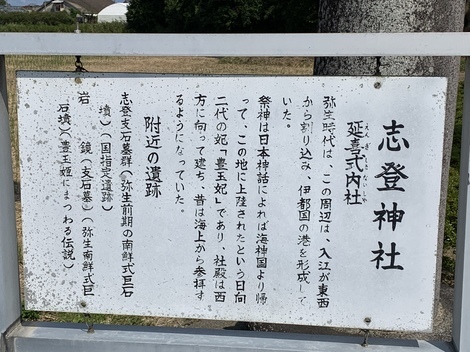 志登神社
延喜式内社
えんぎしきないしゃ
弥生時代は、この周辺は、入江が東西
から割り込み、伊都国の港を形成して
いた。
祭神は日本神話によれば海神国より帰
って、この地に上陸されたという日向
二代の妃「豊玉妃」であり、社殿は西
方に向って建ち、昔は海上から参拝す
るようになっていた。
附近の遺跡
志登支石墓群（弥生前期の南鮮式巨石
墳）（国指定遺跡）
岩鏡（支石墓）（弥生南鮮式巨
石墳）（豊玉姫にまつわる伝説）